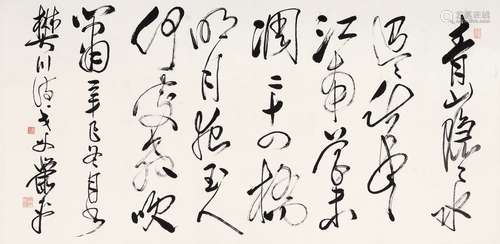 青山隱々水
迢々秋尽
江南草未
凋二十四橋
明月夜玉人
何處教吹
簫 辛巳冬月书
樊川诗